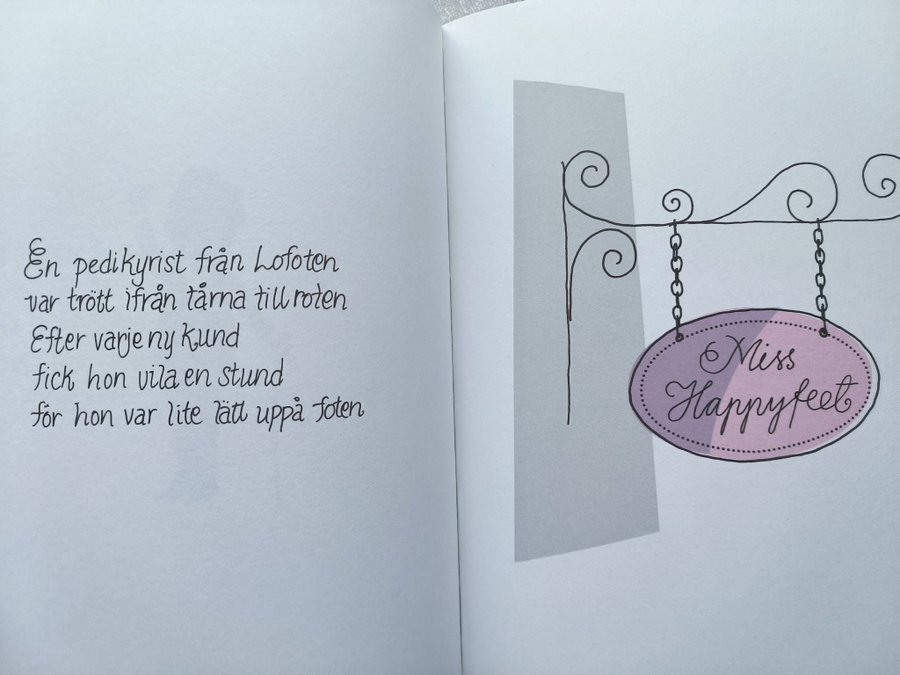 En pedikyrist från Lofoten
var trött ifrån tårna till roten
Efter varje ny kund
fick hon vila en stund
för hon var lite lätt uppå foten
Miss
Happyfeet